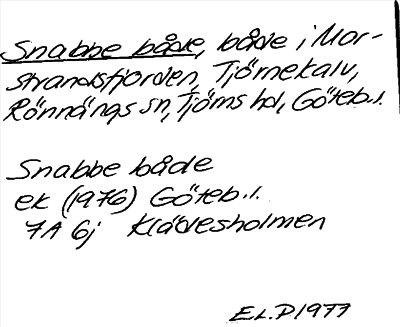 Snabbe både, både i Mar-
strandsfjorden, Tjörnekalv,
Rönnängs sn, Tjörns hd, Göteb. l.
Snabbe både
ek (1976) Göteb. l.
7A 6j Klädesholmen
EL.P 1977